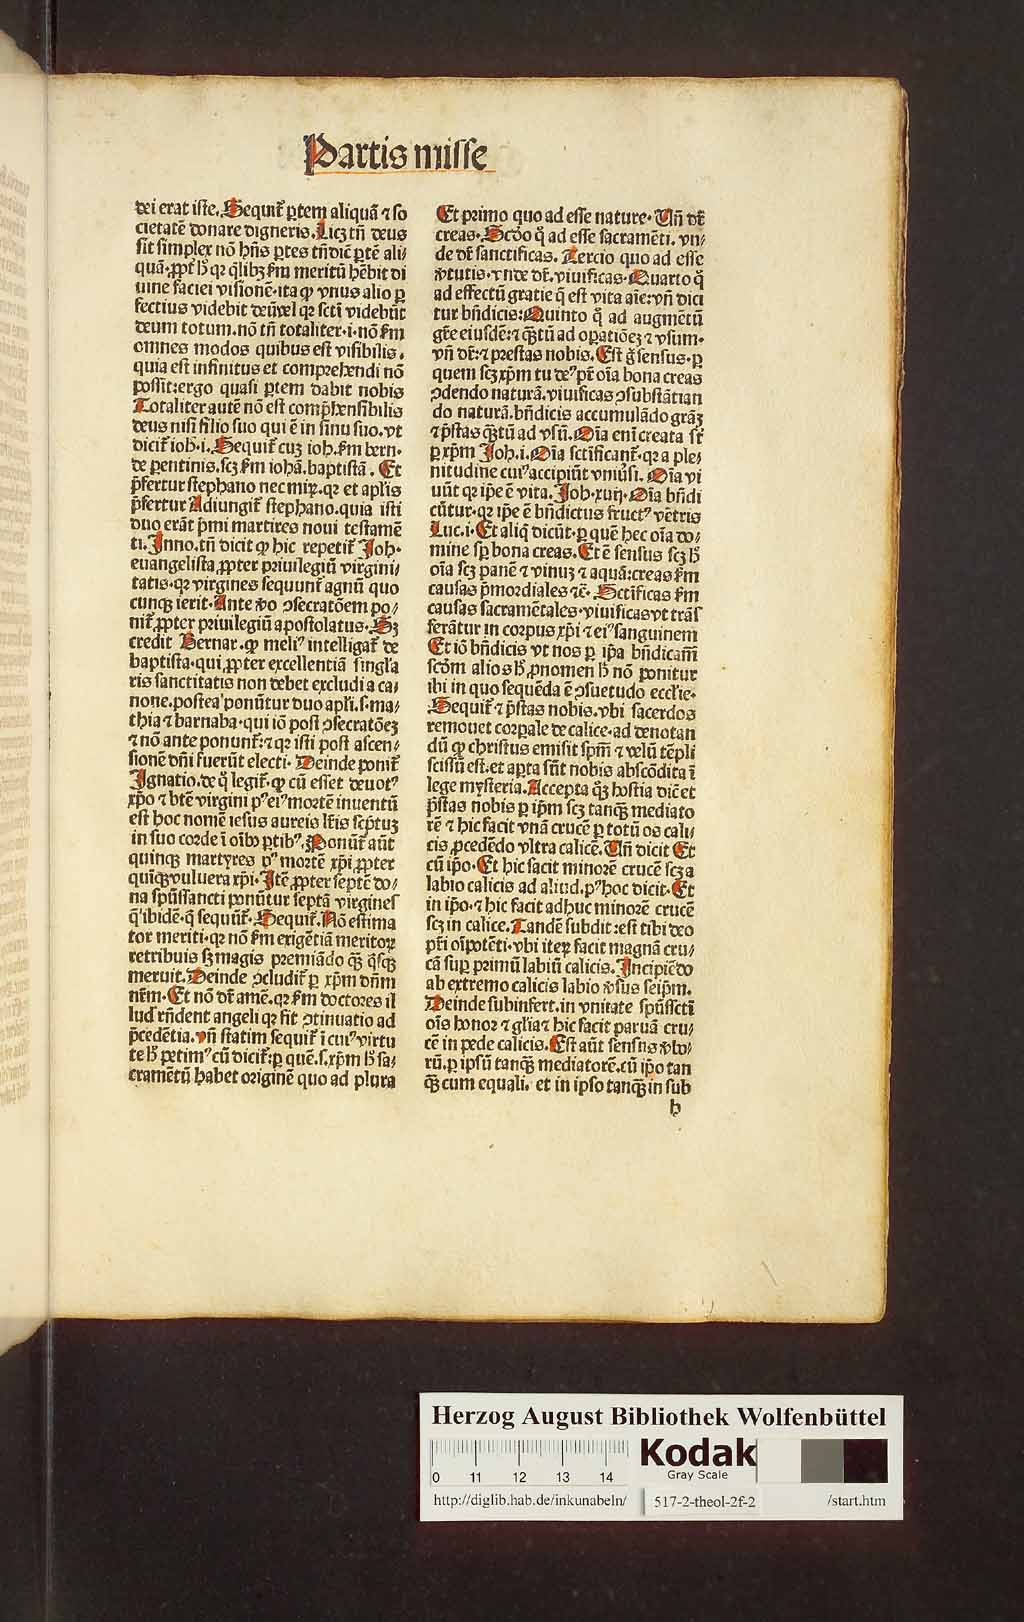 Partis misse
dei erat iste. Sequit̃ ꝑtem aliquã ⁊ so
cietatẽ donare digneris. Licꝫ tñ deus
sit simplex nõ hñs ꝑtes tñ dic̃ ꝑtẽ ali⸗
quã. ꝓpt̃ hͦ qꝛ qͥlibꝫ ẜm meritũ hẽbit di
uine faciei visionẽ. ita ꝙ vnus alio ꝑ
fectius videbit deũ vel qꝛ scti videbũt
deum totum. nõ tñ totaliter. i. nõ ẜm
omnes modos quibus est visibilis.
quia est infinitus et comprehendi nõ
possit: ergo quasi ꝑtem dabit nobis
Totaliter autẽ nõ est comp̃hensibilis
deus nisi filio suo qui ẽ in sinu suo. vt
dicit̃ ioh. i. Sequit̃ cuꝫ ioh. ẜm bern.
de ꝑentinis. scꝫ ẜm iohã. baptistã. Et
p̃fertur stephano nec miꝝ. qꝛ et aplis
p̃fertur Adiungit̃ stephano. quia isti
duo erãt p̃mi martires noui testamẽ
ti. Inno. tñ dicit ꝙ hic repetit̃ Joh.
euangelista ꝓpter priuilegiũ virgini⸗
tatis. qꝛ virgines sequunt̃ agnũ quo
cunqꝫ ierit. Ante ꝟo ꝯsecratõem po⸗
nit̃ ꝓpter priuilegiũ apostolatus. Sꝫ
credit Bernar. ꝙ meliꝰ intelligat̃ de
baptista. qui ꝓpter excellentiã singl̃a
ris sanctitatis non debet excludi a ca⸗
none. postea ponũtur duo apl̃i. s. ma⸗
thia ⁊ barnaba. qui iõ post ꝯsecratõeꝫ
⁊ nõ ante ponunt̃: ⁊ qꝛ isti post ascen⸗
sionẽ dñi fuerũt electi. Deinde ponit̃
Ignatio. de qͦ legit̃. ꝙ cũ esset deuotꝰ
xp̃o ⁊ btẽ virgini pꝰ eiꝰ mortẽ inuentũ
est hoc nomẽ iesus aureis lr̃is scp̃tuꝫ
in suo corde ĩ oĩbꝰ ꝑtibꝰ. Ponũt̃ aũt
quinqꝫ martyres pꝰ mortẽ xp̃i ꝓpter
quĩqꝫ vulnera xp̃i. Itẽ ꝓpter septẽ do⸗
na spũssancti ponũtur septã virgines
q̃ ibidẽ. q̃ sequũt̃. Sequit̃. Nõ estima
tor meriti. qꝛ nõ ẜm exigẽtiã meritoꝝ
retribuis sꝫ magis premiãdo qͣꝫ qͥsqꝫ
meruit. Deinde ꝯcludit̃ ꝑ xp̃m dñm
nr̃m. Et nõ dr̃ amẽ. qꝛ ẜm doctores il
lud rñdent angeli qꝛ fit ꝯtinuatio ad
p̃cedẽtia. vñ statim sequit̃ ĩ cuiꝰ virtu
te hͦ petimꝰ cũ dicit̃: ꝑ quẽ. s. xp̃m hͦ sa⸗
cramẽtũ habet originẽ quo ad plura
Et primo quo ad esse nature. Uñ dr̃
creas. Scðo qͦ ad esse sacramẽti. vn⸗
de dr̃ sanctificas. Tercio quo ad esse
ꝟtutis. vnde dr̃. viuificas. Quarto qͦ
ad effectũ gratie q̃ est vita aĩe: vñ dici
tur bñdicis: Quinto qͦ ad augmẽtũ
gr̃e eiusdẽ: ⁊ qͣꝫtũ ad oꝑatiõeꝫ ⁊ vsum.
vñ dr̃: ⁊ prestas nobis. Est g̊ sensus. ꝑ
quem scꝫ xp̃m tu deꝰ pr̃ oĩa bona creas
ꝯdendo naturã. viuificas ꝯsubstãtian
do naturã. bñdicis accumulãdo grãꝫ
⁊ p̃stas qͣꝫtũ ad vsũ. Oĩa enĩ creata sr̃
ꝑ xp̃m Joh. i. Oĩa sctificant̃. qꝛ a ple⸗
nitudine cuiꝰ accipiũt vniũsi. Oĩa vi
uũt qꝛ ip̃e ẽ vita. Joh. xiiij. Oĩa bñdi
cũtur. qꝛ ip̃e ẽ bñdictus fructꝰ vẽtris
Luc. i. Et aliqͥ dicũt. ꝑ quẽ hec oĩa do⸗
mine sp̃ bona creas. Et ẽ sensus scꝫ hͦ
oĩa scꝫ panẽ ⁊ vinuꝫ ⁊ aquã: creas ẜm
causas p̃mordiales ⁊c̃. Sctificas ẜm
causas sacramẽtales. viuificas vt trãs
ferãtur in corpus xp̃i ⁊ eiꝰ sanguinem
Et iõ bñdicis vt nos ꝑ ip̃a bñdicam̃
scðm alios hͦ ꝓnomen hͦ nõ ponitur
ibi in quo sequẽda ẽ ꝯsuetudo eccl̃ie.
Sequit̃ ⁊ p̃stas nobis. vbi sacerdos
remouet corpale de calice. ad denotan
dũ ꝙ christus emisit spm̃ ⁊ velũ tẽpli
scissũ est. et aꝑta sũt nobis abscõdita ĩ
lege mysteria. Accepta qͦꝫ hostia dic̃ et
p̃stas nobis ꝑ ip̃m scꝫ tanqͣꝫ mediato
rẽ ⁊ hic facit vnã crucẽ ꝑ totũ os cali⸗
cis ꝓcedẽdo vltra calicẽ. Uñ dicit Et
cũ ip̃o. Et hic facit minorẽ crucẽ scꝫ a
labio calicis ad aliud. pꝰ hoc dicit. Et
in ip̃o. ⁊ hic facit adhuc minorẽ crucẽ
scꝫ in calice. Tandẽ subdit: est tibi deo
pr̃i oĩpotẽti. vbi iteꝝ facit magnã cru⸗
cẽ suꝑ primũ labiũ calicis. Incipiẽdo
ab extremo calicis labio ꝟsus seip̃m.
Deinde subinfert. in vnitate spũsscti
oĩs honor ⁊ gl̃ia ⁊ hic facit paruã cru⸗
cẽ in pede calicis. Est aũt sensus ꝟbo⸗
rũ. ꝑ ipsũ tanqͣꝫ mediatorẽ. cũ ip̃o tan
qͣꝫ cum equali. et in ipso tanqͣꝫ in sub
h
Herzog August Bibliothek Wolfenbüttel
0 11 12 13 14
Kodak
Gray Scale
http://diglib.hab.de/inkunabeln/ 517-2-theol-2f-2 /start.htm